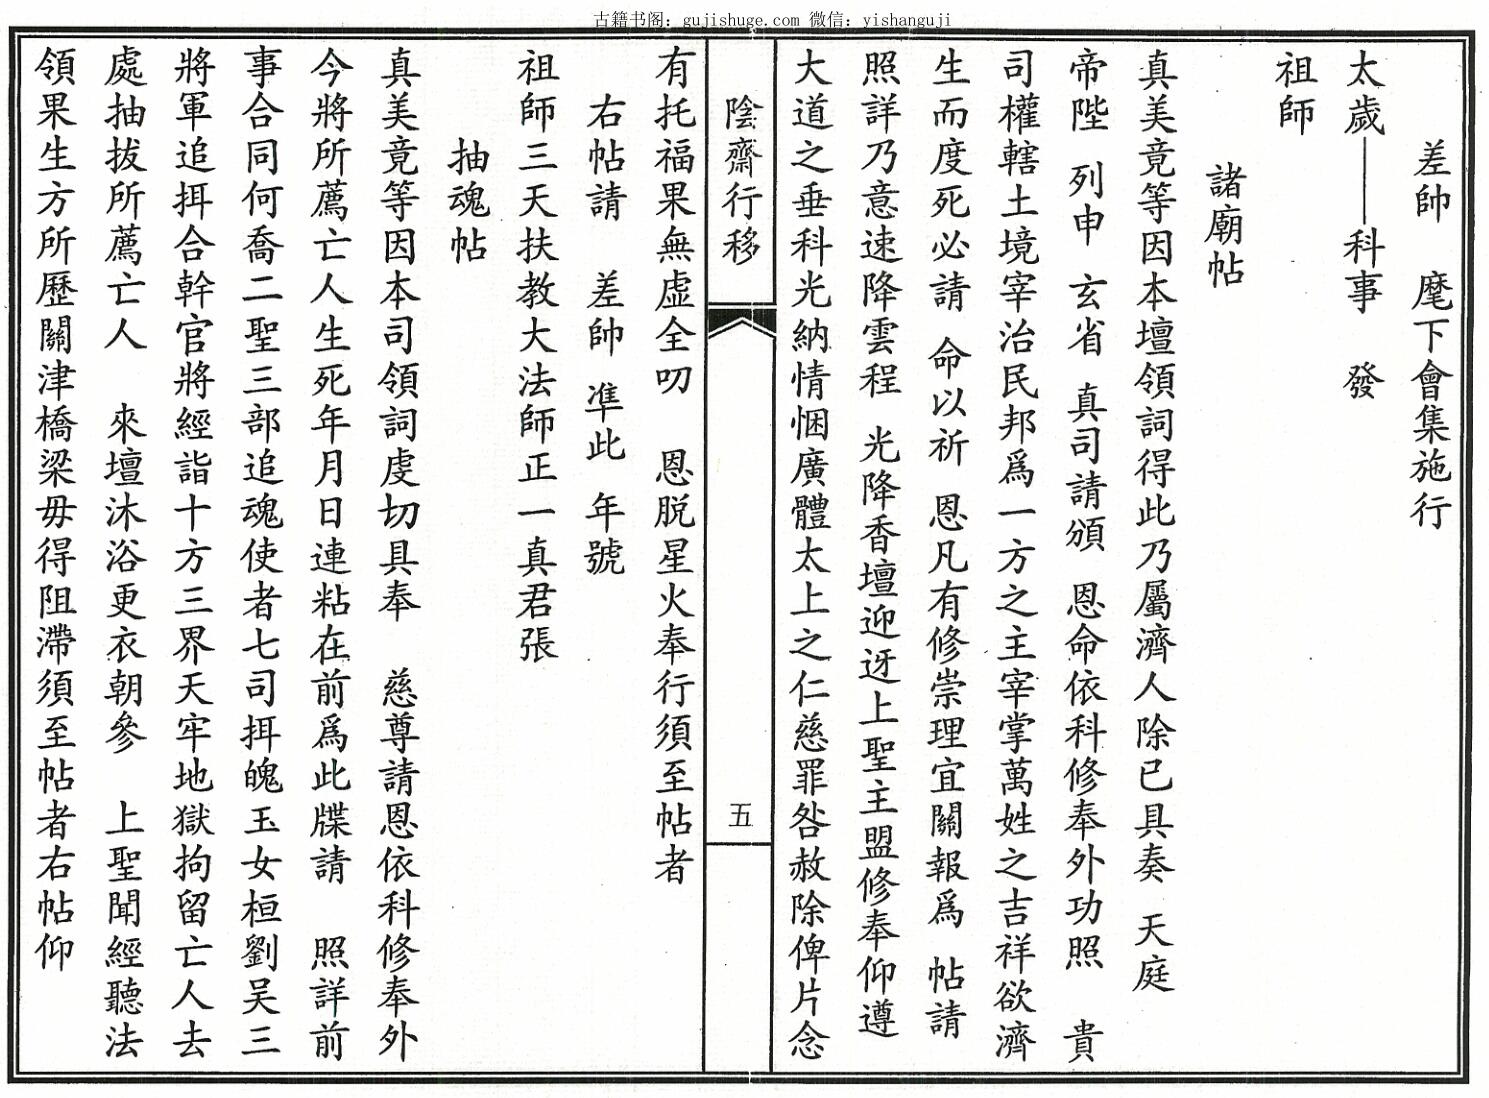 古籍书阁：gujishuge.com 微信：yishanguji
差帥　麾下會集施行
太歲——科事　發
祖師
諸廟帖
真美竟等因本壇領詞得此乃屬濟人除已具奏　天庭
帝陛　列申　玄省　真司請頒　恩命依科修奉外功照　貴
司權轄土境宰治民邦爲一方之主宰掌萬姓之吉祥欲濟
生而度死必請　命以祈　恩凡有修崇理宜關報爲　帖請
照詳乃意速降雲程　光降香壇迎迓上聖主盟修奉仰遵
大道之垂科光納情悃廣體太上之仁慈罪咎赦除俾片念
陰齋行移
五
有托福果無虛全叨　恩脱星火奉行須至帖者
右帖請　差帥　準此　年號
祖師三天扶教大法師正一真君張
抽魂帖
真美竟等因本司領詞虔切具奉　慈尊請恩依科修奉外
今將所薦亡人生死年月日連粘在前爲此牒請　照詳前
事合同何喬二聖三部追魂使者七司挕魄玉女桓劉吴三
將軍追挕合幹官將經詣十方三界天牢地獄拘留亡人去
處抽拔所薦亡人　來壇沐浴更衣朝參　上聖聞經聽法
領果生方所歷關津橋梁毋得阻滯須至帖者右帖仰